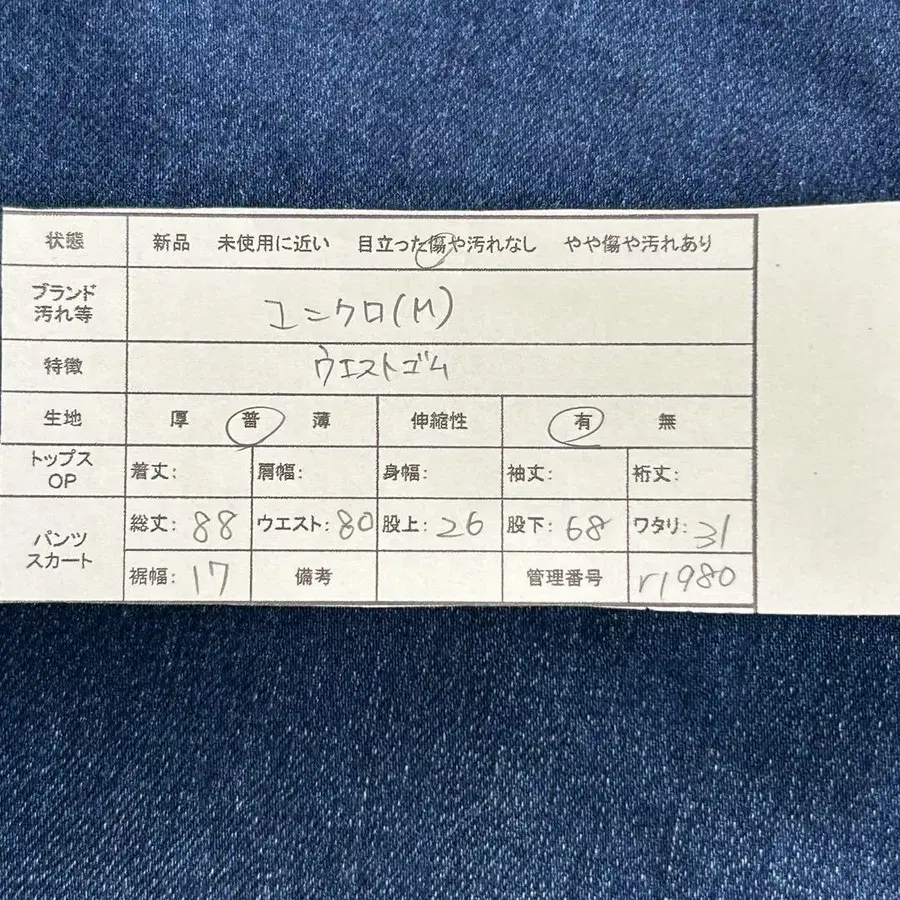 状態 新品 未使用に近い 目立った傷や汚れなし やや傷や汚れあり
ブランド
汚れ等
ユニクロ(M)
特徴 ウエストゴム
生地 厚 普 薄 伸縮性 有 無
トップス
OP
着丈: 肩幅: 身幅: 袖丈: 裄丈:
パンツ
スカート
総丈: 88 ウエスト: 80 股上: 26 股下: 68 ワタリ: 31
裾幅: 17 備考 管理番号 r1980